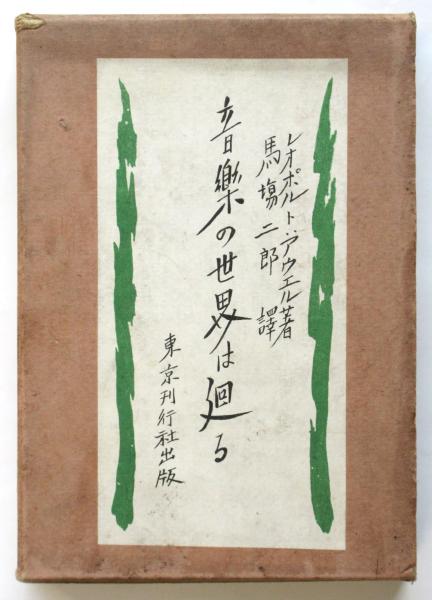 レオポルト・アウエル著
馬塲二郎譯
音樂の世界は廻る
東京刊行社出版